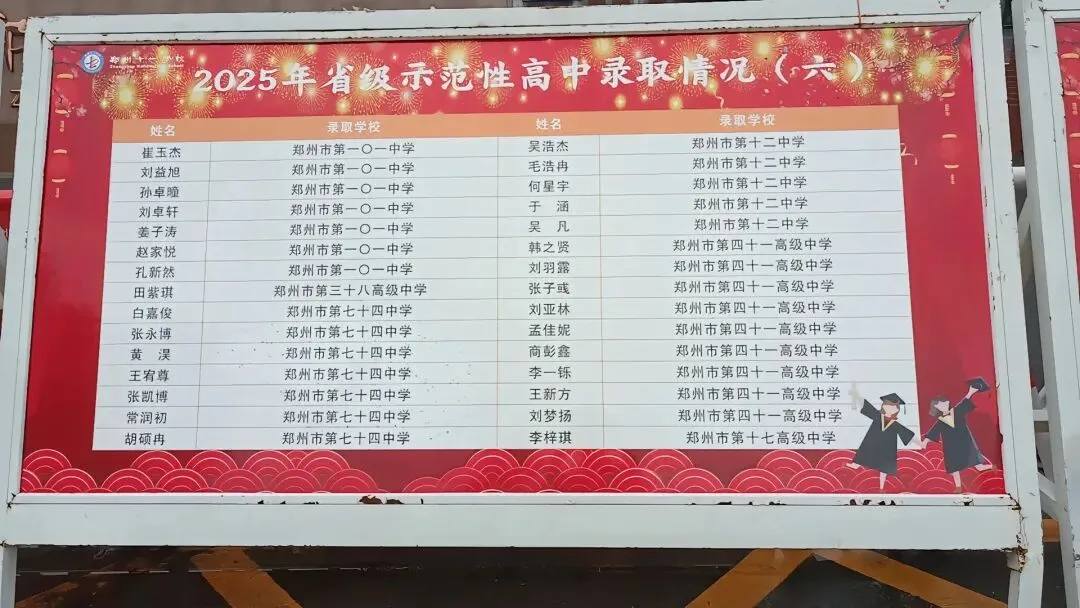 2025年省级示范性高中录取情况（六）
姓名 录取学校 姓名 录取学校
崔玉杰 郑州市第一〇一中学 吴浩杰 郑州市第十二中学
刘益旭 郑州市第一〇一中学 毛浩冉 郑州市第十二中学
孙卓曈 郑州市第一〇一中学 何星宇 郑州市第十二中学
刘卓轩 郑州市第一〇一中学 于 涵 郑州市第十二中学
姜子涛 郑州市第一〇一中学 吴 凡 郑州市第十二中学
赵家悦 郑州市第一〇一中学 韩之贤 郑州市第四十一高级中学
孔新然 郑州市第一〇一中学 刘羽露 郑州市第四十一高级中学
田紫琪 郑州市第三十八高级中学 张子彧 郑州市第四十一高级中学
白嘉俊 郑州市第七十四中学 刘亚林 郑州市第四十一高级中学
张永博 郑州市第七十四中学 孟佳妮 郑州市第四十一高级中学
黄 淏 郑州市第七十四中学 商彭鑫 郑州市第四十一高级中学
王宥尊 郑州市第七十四中学 李一铄 郑州市第四十一高级中学
张凯博 郑州市第七十四中学 王新方 郑州市第四十一高级中学
常润初 郑州市第七十四中学 刘梦扬 郑州市第四十一高级中学
胡硕冉 郑州市第七十四中学 李梓琪 郑州市第十七高级中学